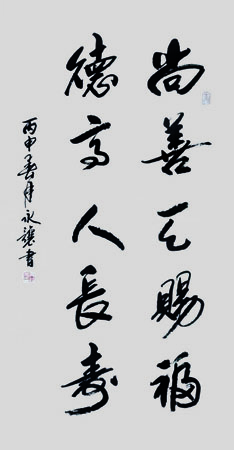 尚善天賜福
德高人長壽
丙申春月永讓書